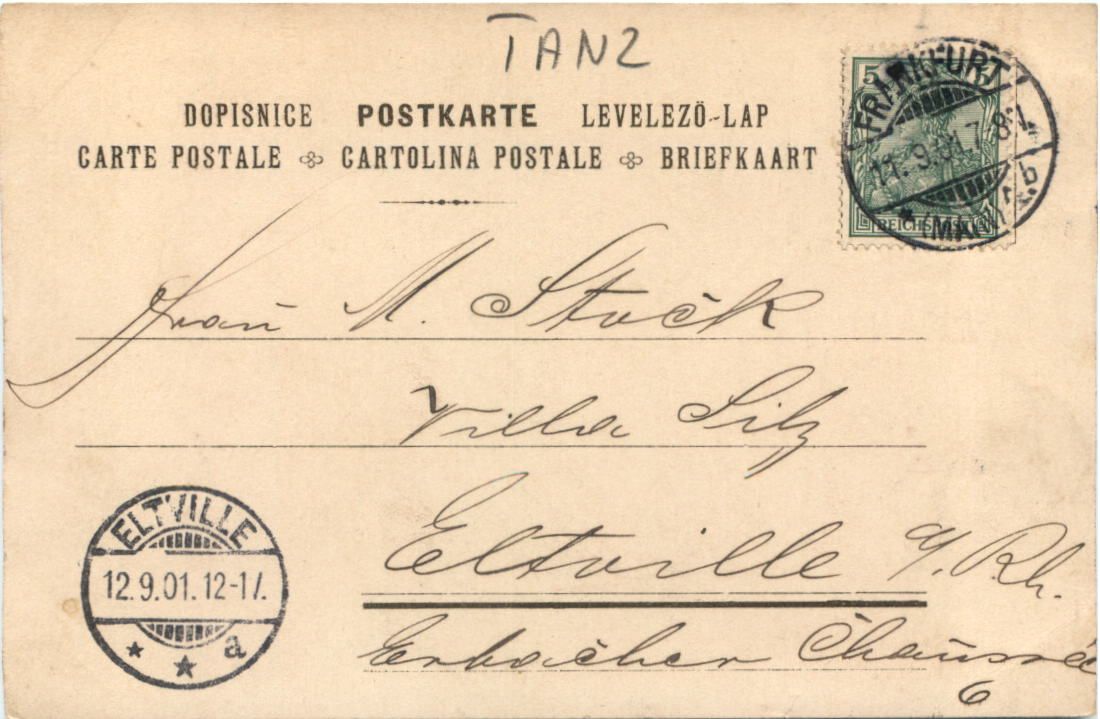 TANZ
DOPISNICE POSTKARTE LEVELEZŐ-LAP
CARTE POSTALE CARTOLINA POSTALE BRIEFKAART
5
FRANKFURT
11. 9. 01. 7-8
(MAIN)
REICHSPOST
Frau M. Stock
Villa Silz
Eltville a/Rh.
Erbacher Chaussee
6
ELTVILLE
12.9.01.12-1
a